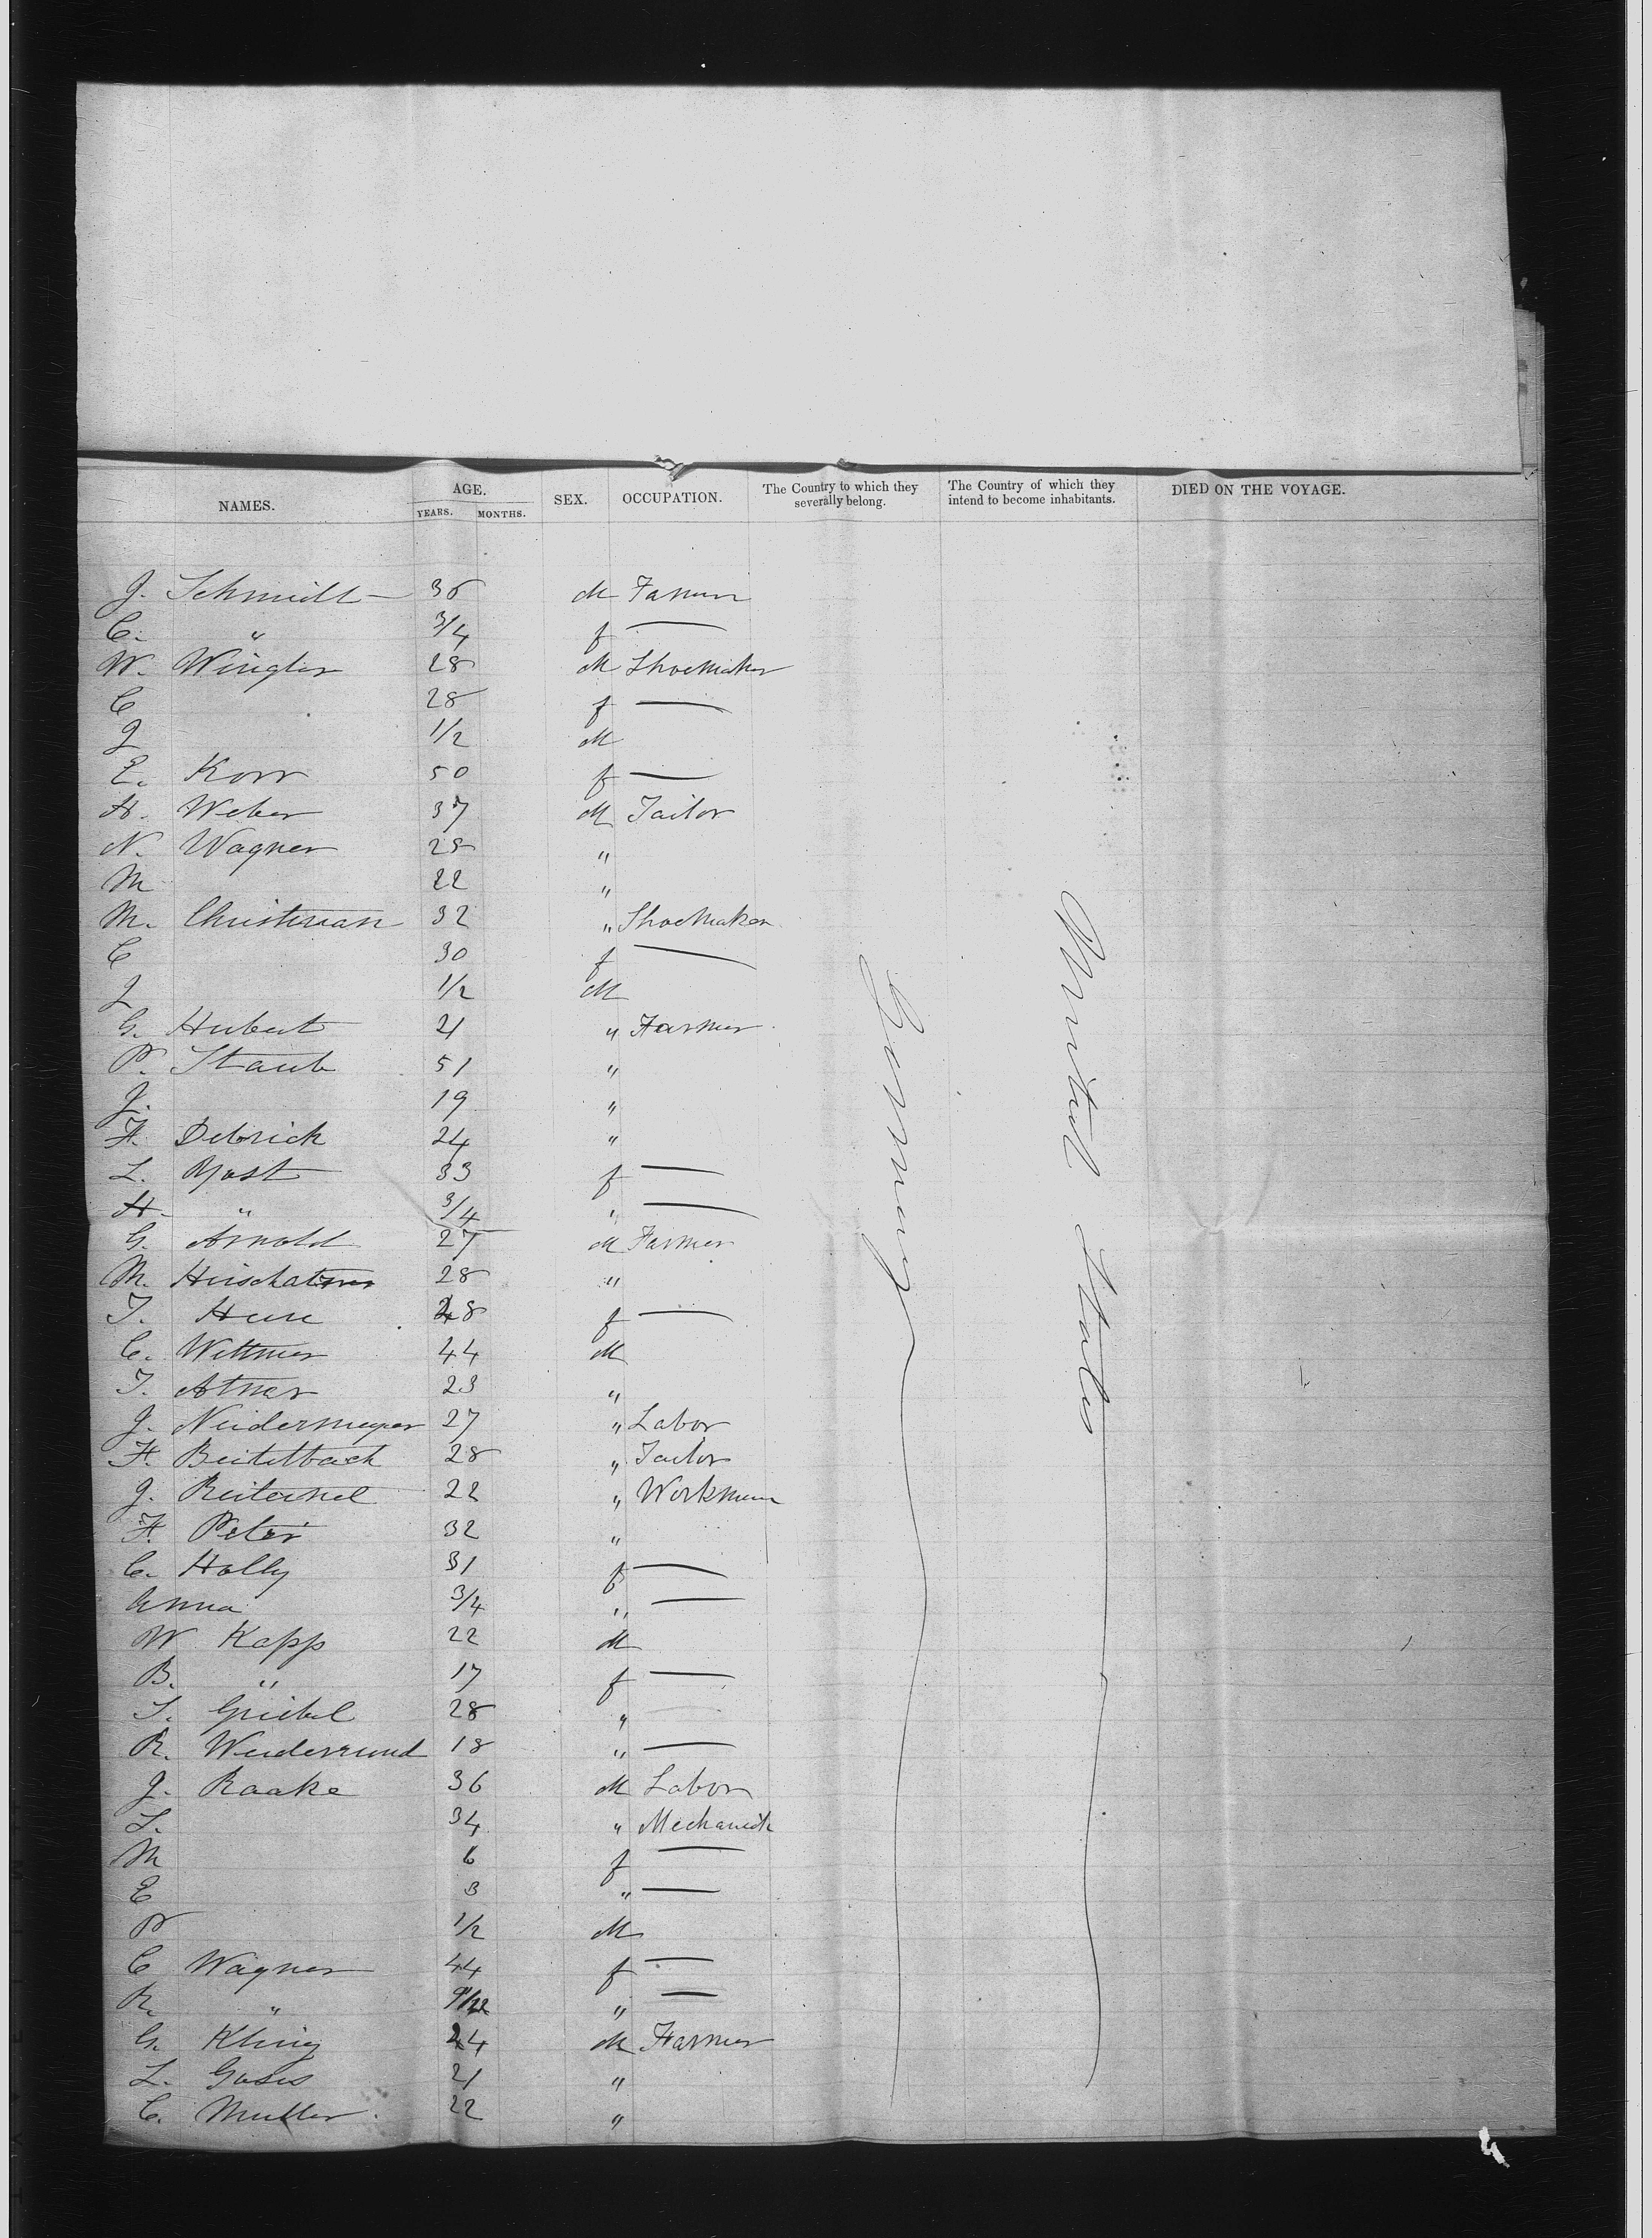 NAMES. AGE. YEARS. MONTHS. SEX. OCCUPATION. The Country to which they severally belong. The Country of which they intend to become inhabitants. DIED ON THE VOYAGE.
J. Schmidt — 36 M Farmer
C. " 3/4 f —
W. Wingler 28 M ShoeMaker
C 28 f —
J 1/2 M
E. Korr 50 f —
H. Weber 37 M Tailor
N. Wagner 28 "
M 22 "
M. Christman 32 " ShoeMaker
C 30 f —
J 1/2 M
G. Hubert 21 " Farmer
P. Staub 51 "
J. 19 "
F. Debrick 24 "
L. Yost 33 f —
H. " 3/4 " —
G. Arnold 27 M Farmer
M. 28 "
T. 28 f —
C. Wittmer 44 M
T. Atner 23 "
J. Neidermeyer 27 " Labor
F. Beitelbach 28 " Tailor
J. 22 " Workman
F. Peter 32 "
C. Holly 31 f —
Anna 3/4 " —
W Kapp 22 M
B. " 17 f —
S. Griebel 28 "
R. 18 " —
J. Raake 36 M Labor
S. 34 " Mechanick
M 6 f —
E 3 " —
P 1/2 M
C Wagner 44 f —
R. " 9/12 " —
G. Kling 24 M Farmer
L. 21 "
C. Muller 22 "
Germany
United States